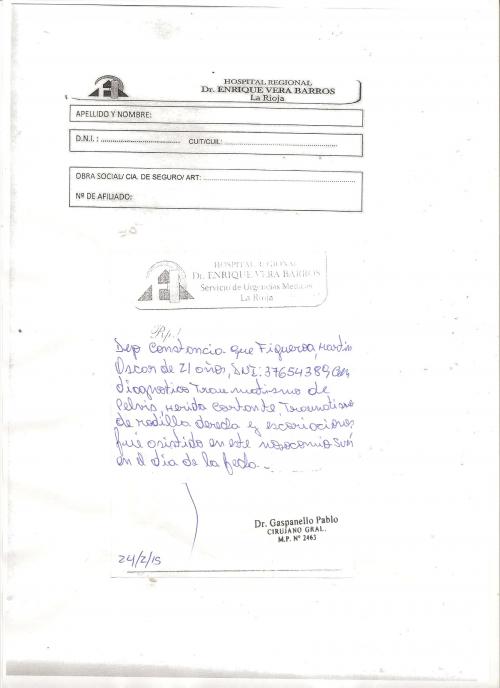 HOSPITAL REGIONAL
Dr. ENRIQUE VERA BARROS
La Rioja
APELLIDO Y NOMBRE:
D.N.I. : ........................................ CUIT/CUIL: ........................................................
OBRA SOCIAL/ CIA. DE SEGURO/ ART: ........................................................
Nº DE AFILIADO:
HOSPITAL REGIONAL
Dr. ENRIQUE VERA BARROS
Servicio de Urgencias Médicas
La Rioja
Rp./
Dejo Constancia que Figueroa, Martin
Oscar de 21 años, DNI: 37654389
diagnostico Traumatismo de
Pelvis, Herida Cortante, Traumatismo
de rodilla derecha y escoriaciones
fue asistido en este nosocomio
en el día de la fecha.-
Dr. Gaspanello Pablo
CIRUJANO GRAL.
M.P. Nº 2463
24/2/15